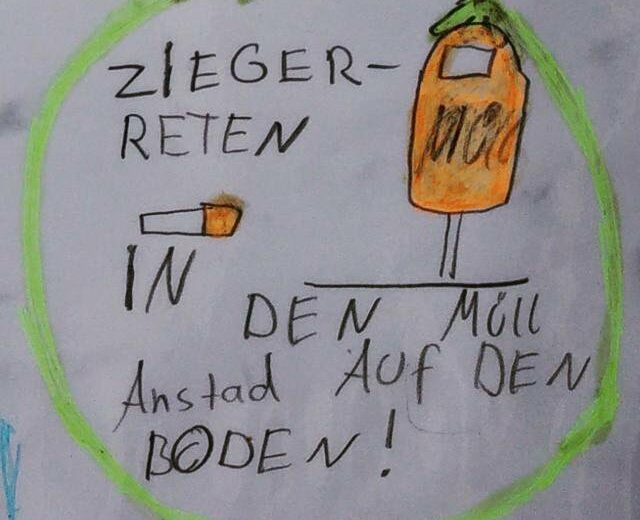 ZIEGER-
RETEN
IN
DEN MÜll
Anstad AUf DEN
BODEN!